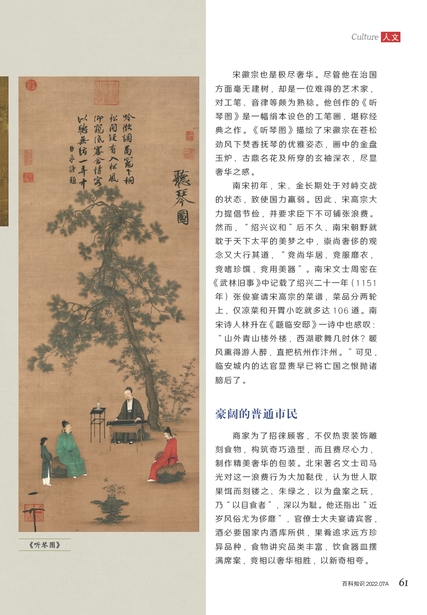 Culture 人文
吟徵調商竈下桐
松間疑有入松風
仰窺低審含情客
以聽無絃一弄中
臣京謹題
聽琴圖
《听琴图》
宋徽宗也是极尽奢华。尽管他在治国
方面毫无建树，却是一位难得的艺术家，
对工笔、音律等颇为熟稔。他创作的《听
琴图》是一幅绢本设色的工笔画，堪称经
典之作。《听琴图》描绘了宋徽宗在苍松
劲风下焚香抚琴的优雅姿态，画中的金盘
玉炉、古鼎名花及所穿的玄袖深衣，尽显
奢华之感。
南宋初年，宋、金长期处于对峙交战
的状态，致使国力羸弱。因此，宋高宗大
力提倡节俭，并要求臣下不可铺张浪费。
然而，“绍兴议和”后不久，南宋朝野就
耽于天下太平的美梦之中，崇尚奢侈的观
念又大行其道，“竞尚华居，竞服靡衣，
竞嗜珍馔，竞用美器”。南宋文士周密在
《武林旧事》中记载了绍兴二十一年（1151
年）张俊宴请宋高宗的菜谱，菜品分两轮
上，仅凉菜和开胃小吃就多达 106 道。南
宋诗人林升在《题临安邸》一诗中也感叹：
“山外青山楼外楼，西湖歌舞几时休？暖
风熏得游人醉，直把杭州作汴州。”可见，
临安城内的达官显贵早已将亡国之恨抛诸
脑后了。
豪阔的普通市民
商家为了招徕顾客，不仅热衷装饰雕
刻食物，构筑奇巧造型，而且费尽心力，
制作精美奢华的包装。北宋著名文士司马
光对这一浪费行为大加鞑伐，认为世人取
果饵而刻镂之、朱绿之，以为盘案之玩，
乃“以目食者”，深以为耻。他还指出“近
岁风俗尤为侈靡”，官僚士大夫宴请宾客，
酒必要国家内酒库所供，果肴追求远方珍
异品种，食物讲究品类丰富，饮食器皿摆
满席案，竞相以奢华相胜，以新奇相夸。
百科知识 2022.07A 61